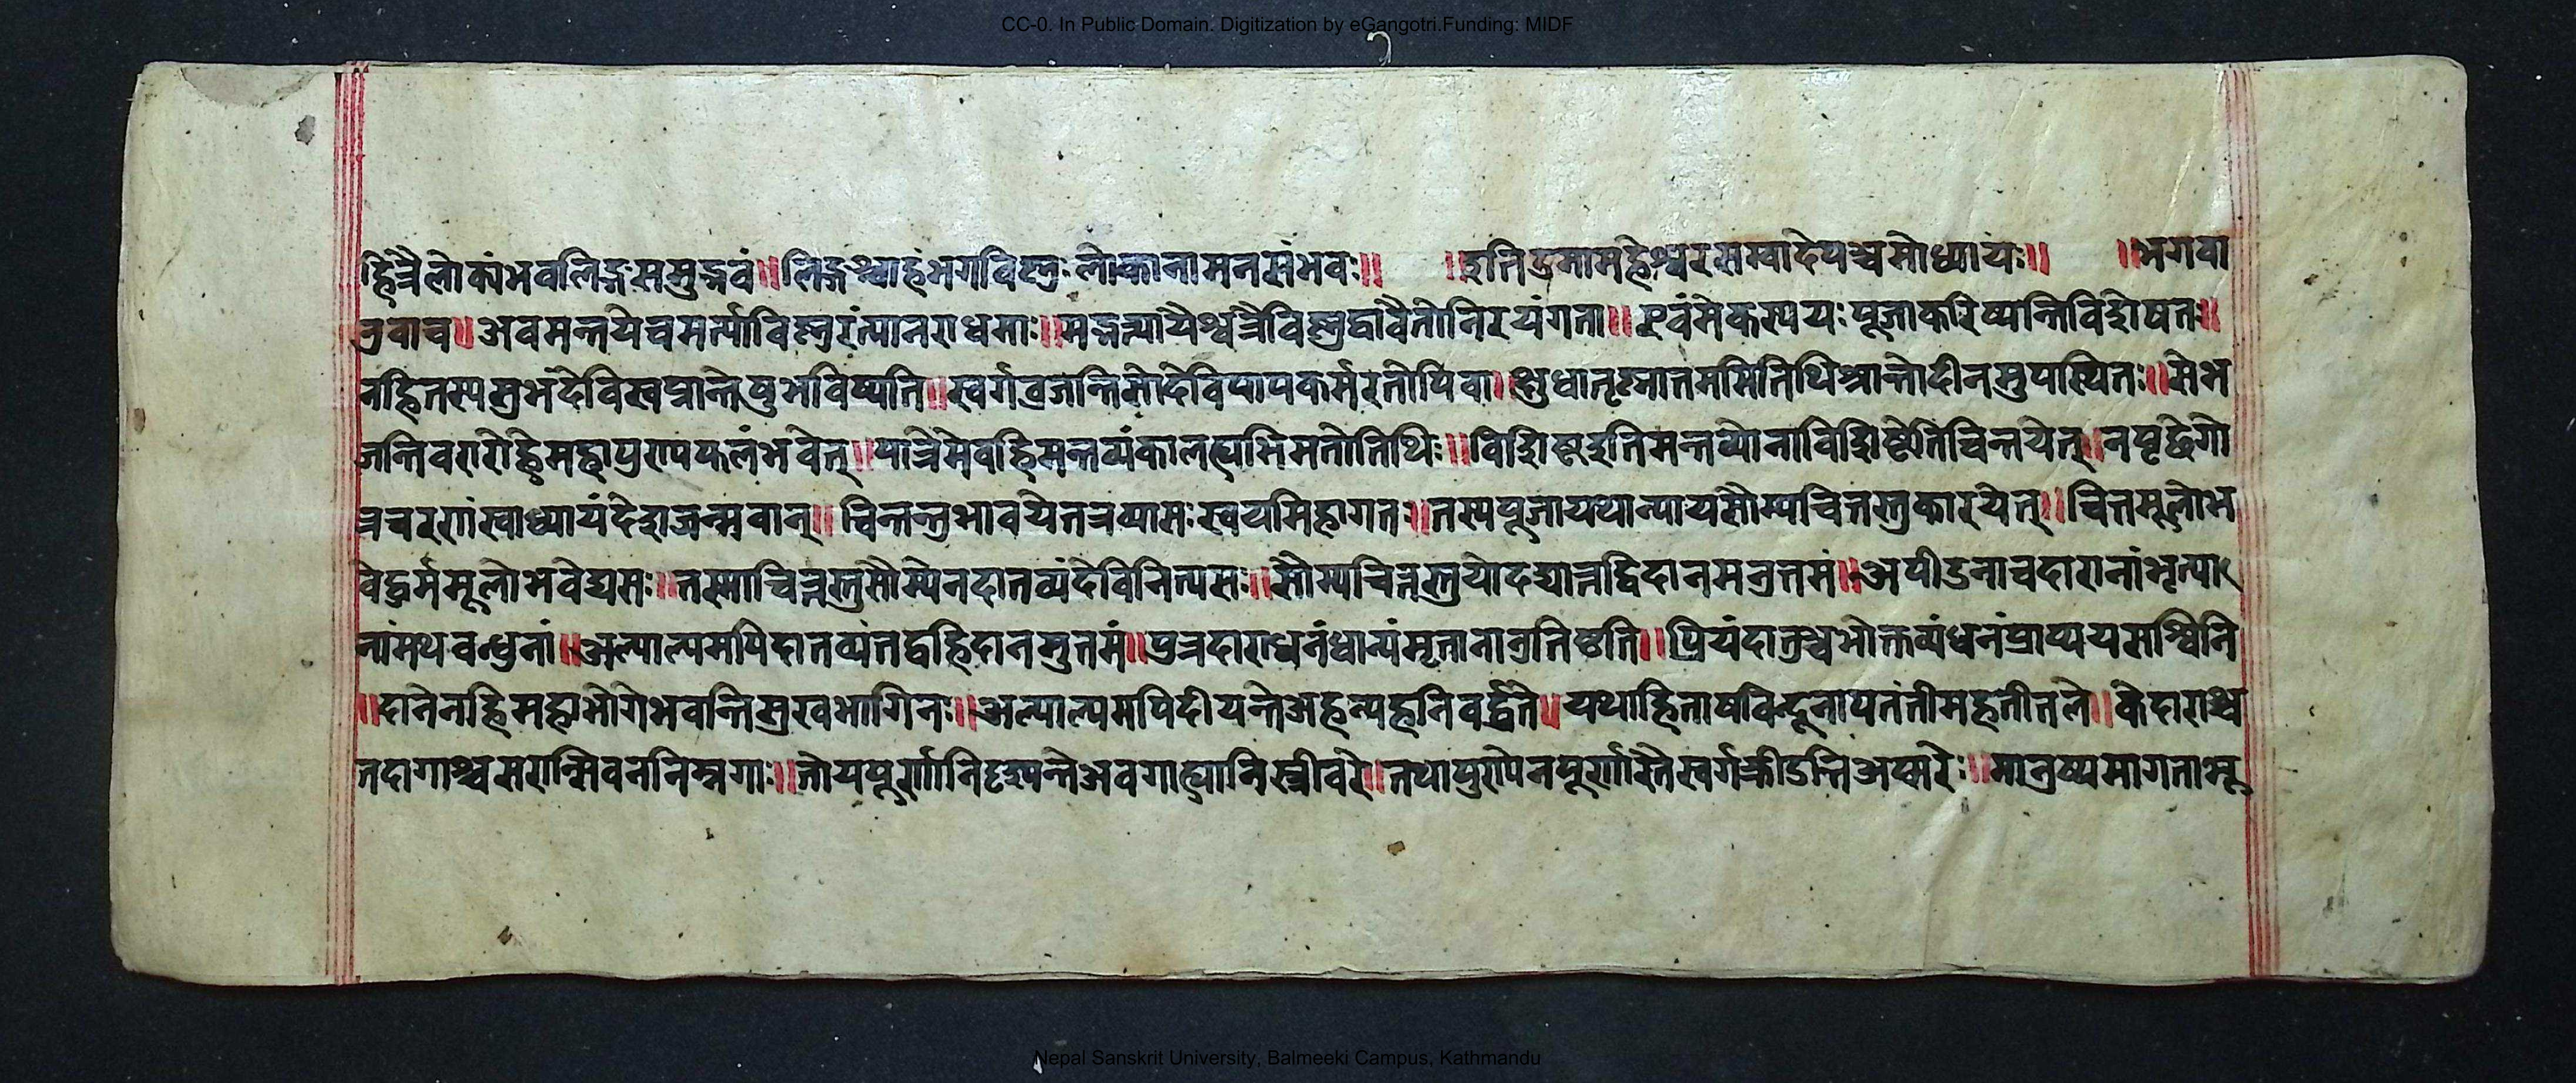 CC-0. In Public Domain. Digitization by eGangotri.Funding: MIDF
द्धित्रैलोक्यंभवलिङ्गसमुद्भवं॥लिङ्गश्चाहंभगविष्णुःलोकानामनसंभवः॥ ॥इतिउमामहेश्वरसम्वादेपञ्चमोध्यायः॥ ॥भगवा
नुवाच॥अवमन्तयेचमर्त्याविष्णुरंत्यानराधमाः॥मद्भक्त्यायैश्चत्रैविष्णुद्वावैतोनिरयंगता॥एवंमेकस्पयःपूजाकरिष्यन्तिविशेषत॥
नहितस्यसुभंदेविस्वप्नान्तेषुभविष्यति॥स्वर्गव्रजान्तिसोदेविपापकर्मरतोपिवा॥क्षुधातृष्णातममतिथिश्रान्तोदीनमुपस्थितः॥सेभ
जन्तिवरारोहेमहापुण्यफलंभवेत्॥पात्रमेवहिमन्तव्यंकालह्यभिमतोतिथिः॥विशिष्टइतिमन्तव्योनाविशिष्टेतिचिन्तयेत्॥नपृछेगो
त्रचरणंस्वाध्यायंदेशजन्मवान्॥चिन्तन्तुभावयेतत्रव्यासःस्वयमिहागतः॥तस्यपूजायथान्यायसौम्यचित्तस्तुकारयेत्॥चित्तमूलोभ
वेद्धर्ममूलोभवेद्यसः॥तस्माचित्तस्तुसौम्येनदातव्यंदेविनित्यसः॥सौम्यचित्तस्तुयोदद्यात्तद्विदानमनुत्तमं॥अपीडनाचदारानांभृत्या
नांमथवन्धुनां॥अल्पाल्पमपिदातव्यंतद्वहिदानमुतमं॥पुत्रदाराधनंधान्यंमृतानानुतिष्ठति॥प्रियंदातुश्चभोक्तव्यंधनंप्राप्ययसस्विनि
॥दानेनहिमहाभोगेभवन्तिसुखभागिनः॥अल्पाल्पमपिदीयन्तेअहन्यहनिवर्द्धते॥यथाहितोषविन्दूनापतंतीमहतीतले॥केदाराश्च
तदागाश्चसरान्सिवननिम्नगाः॥तोयपूर्णानिदृस्यन्तेअवगाह्यानिस्त्रीवरे॥तथापुण्येनपूर्णास्तैस्वर्गक्रीडन्तिअप्सरेः॥मानुष्यमागताभू
Nepal Sanskrit University, Balmeeki Campus, Kathmandu